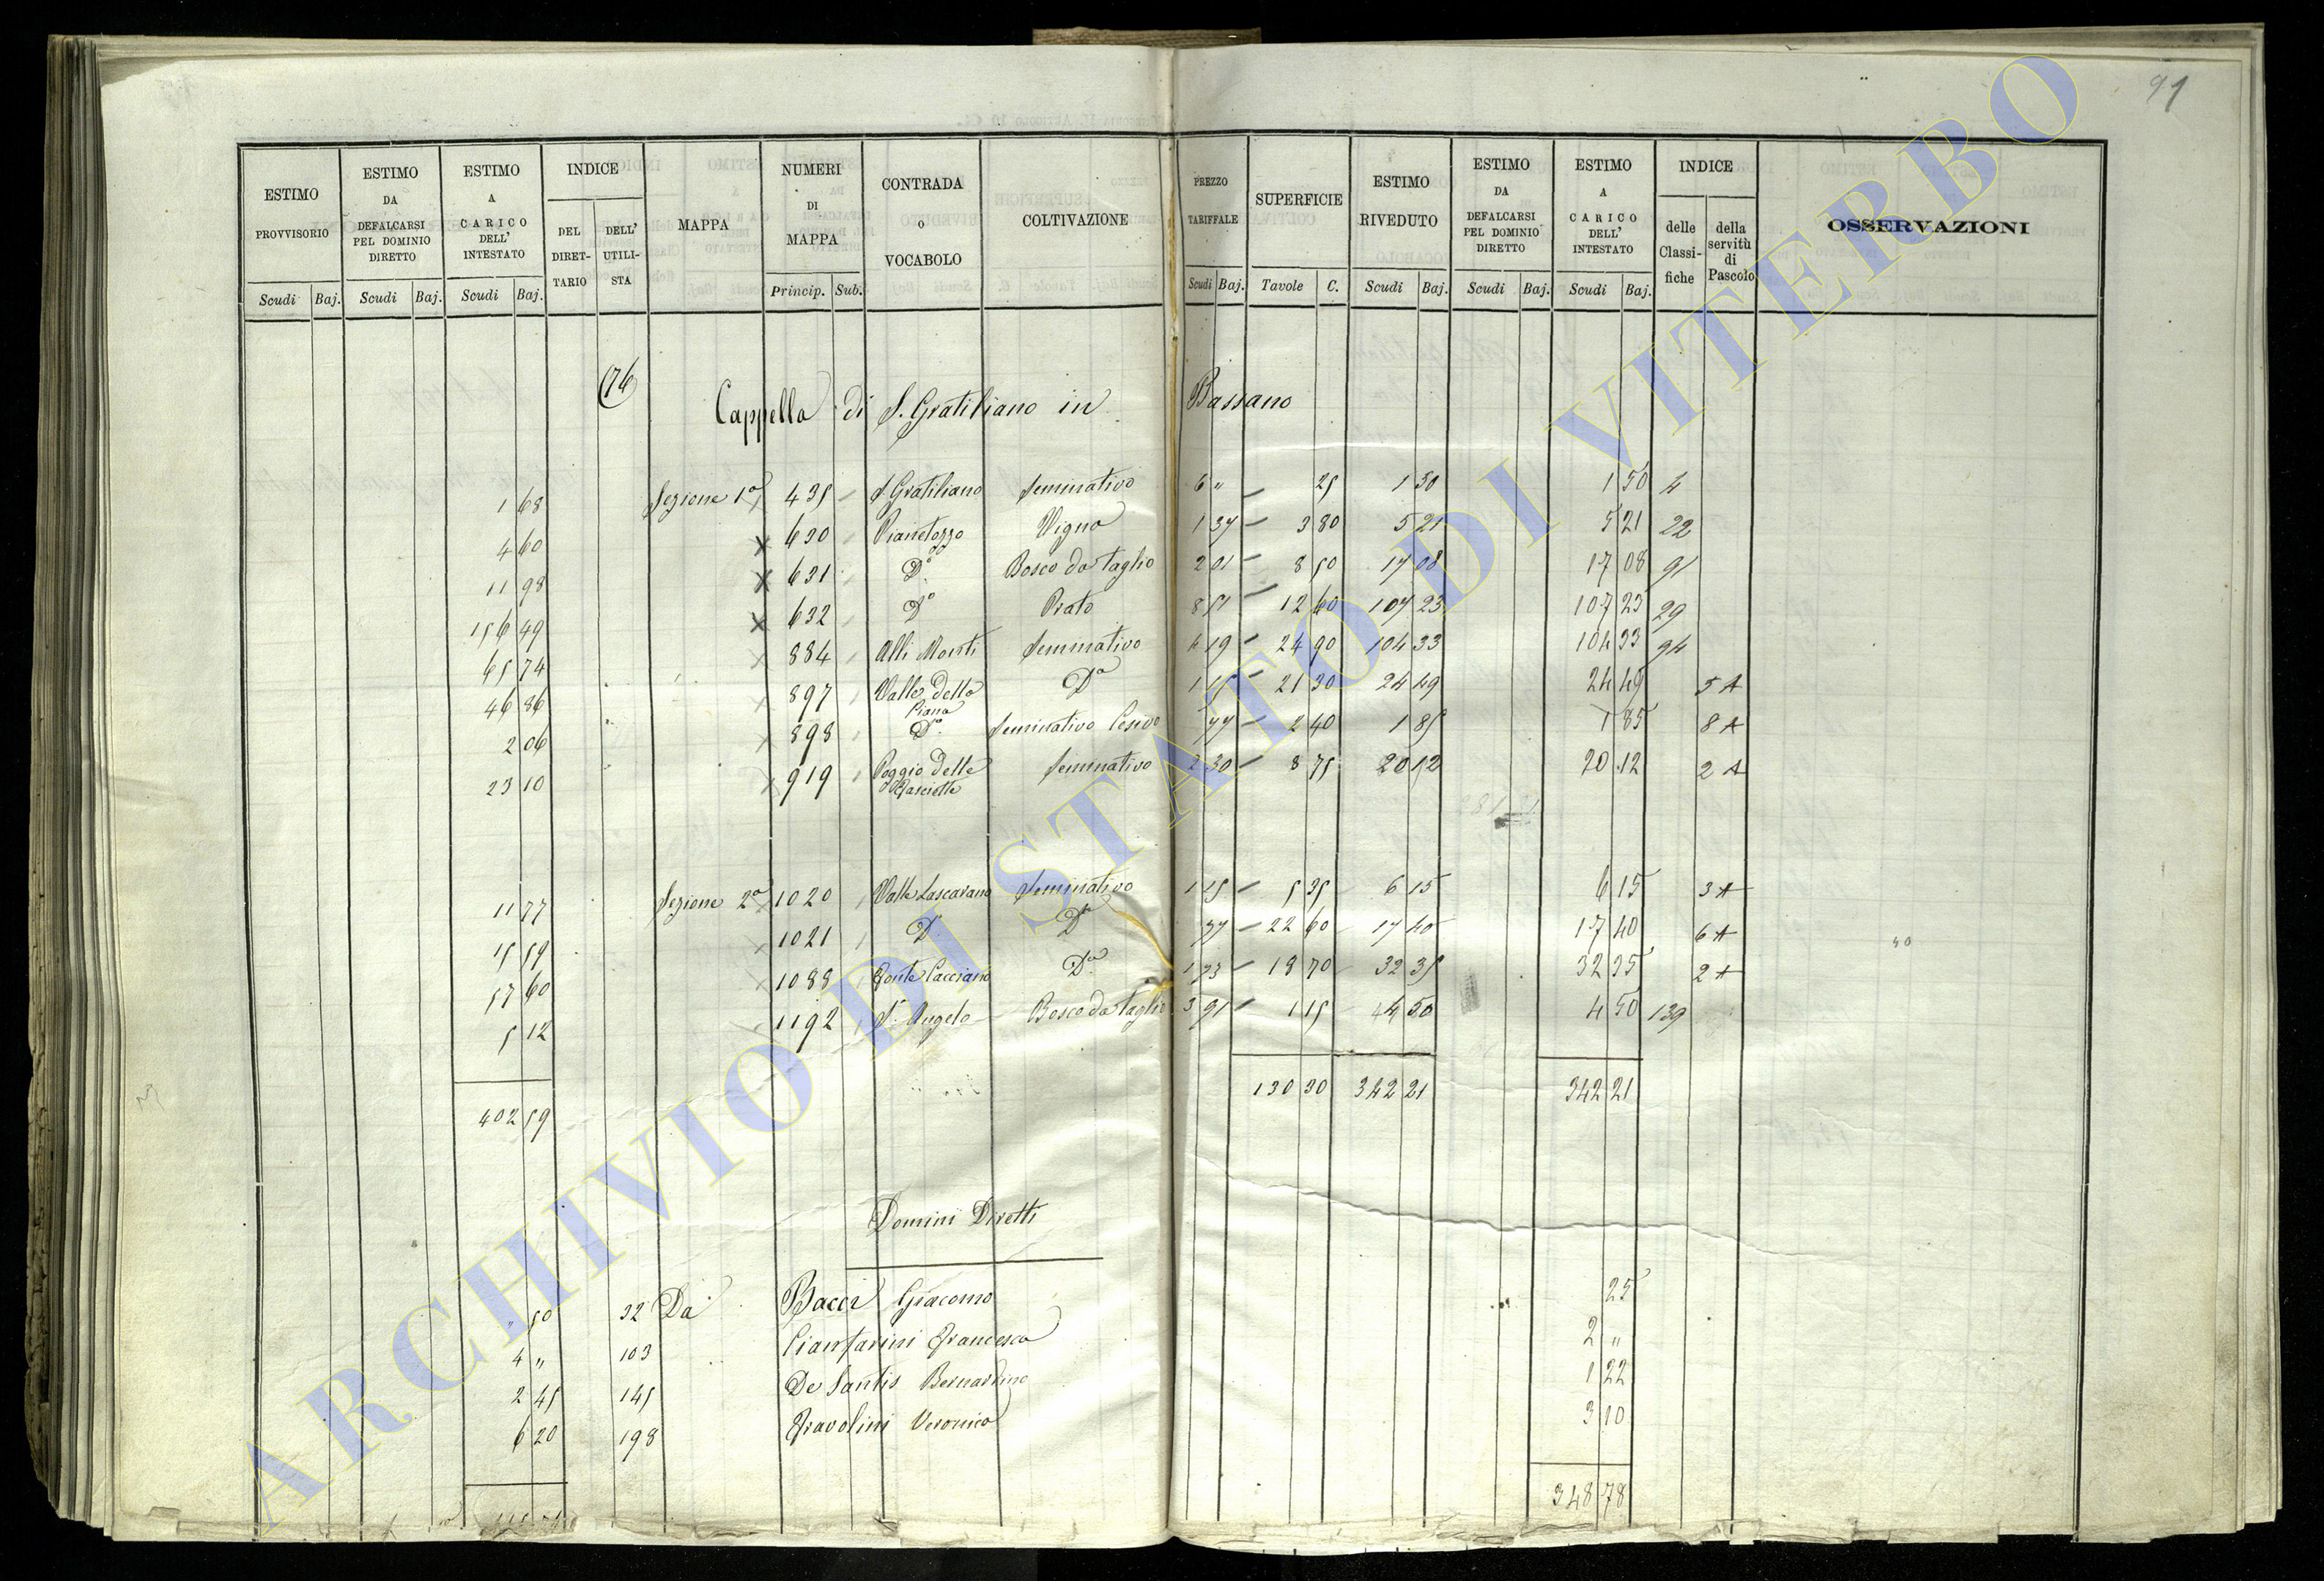 91
ESTIMO PROVVISORIO
ESTIMO DA DEFALCARSI PEL DOMINIO DIRETTO
ESTIMO A CARICO DELL' INTESTATO
INDICE
DEL DIRET-TARIO
DELL' UTILI-STA
MAPPA
NUMERI DI MAPPA
CONTRADA o VOCABOLO
COLTIVAZIONE
PREZZO TARIFFALE
SUPERFICIE
ESTIMO RIVEDUTO
ESTIMO DA DEFALCARSI PEL DOMINIO DIRETTO
ESTIMO A CARICO DELL' INTESTATO
INDICE
delle Classi-fiche
della servitù di Pascolo
OSSERVAZIONI
Scudi Baj. Scudi Baj. Scudi Baj. Princip. Sub. Scudi Baj. Tavole C. Scudi Baj. Scudi Baj. Scudi Baj.
76
Cappella di S. Gratiliano in Bassano
1 68 Sezione 1a 435 S. Gratiliano Seminativo 6 " 25 1 50 1 50 4
4 60 630 Pianetozzo Vigna 1 37 3 80 5 21 5 21 22
11 98 631 Do Bosco da taglio 2 01 8 50 17 08 17 08 91
156 49 632 Do Prato 8 51 12 60 107 23 107 23 29
65 74 884 Alli Monti Seminativo 4 19 24 90 104 33 104 33 94
46 86 897 Valle della Piana Do 1 15 21 30 24 49 24 49 5 A
2 06 898 Do Seminativo Cesivo 77 2 40 1 85 1 85 8 A
23 10 919 Poggio delle Seminativo 2 30 8 75 20 12 20 12 2 A
11 77 Sezione 2a 1020 Valle Lascarana Seminativo 1 15 5 35 6 15 6 15 3 A
15 59 1021 D Do 77 22 60 17 40 17 40 6 A
57 60 1088 Fonte Cacciano Do 1 73 18 70 32 35 32 35 2 A
5 12 1192 S. Angelo Bosco da taglio 3 91 1 15 4 50 4 50 139
402 59 130 30 342 21 342 21
Domini Diretti
" 50 32 Da Bacci Giacomo 25
4 " 103 Cianfarini Francesco 2 "
2 45 145 De Santis Bernardino 1 22
6 20 198 Fravolini Veronica 3 10
348 78
ARCHIVIO DI STATO DI VITERBO